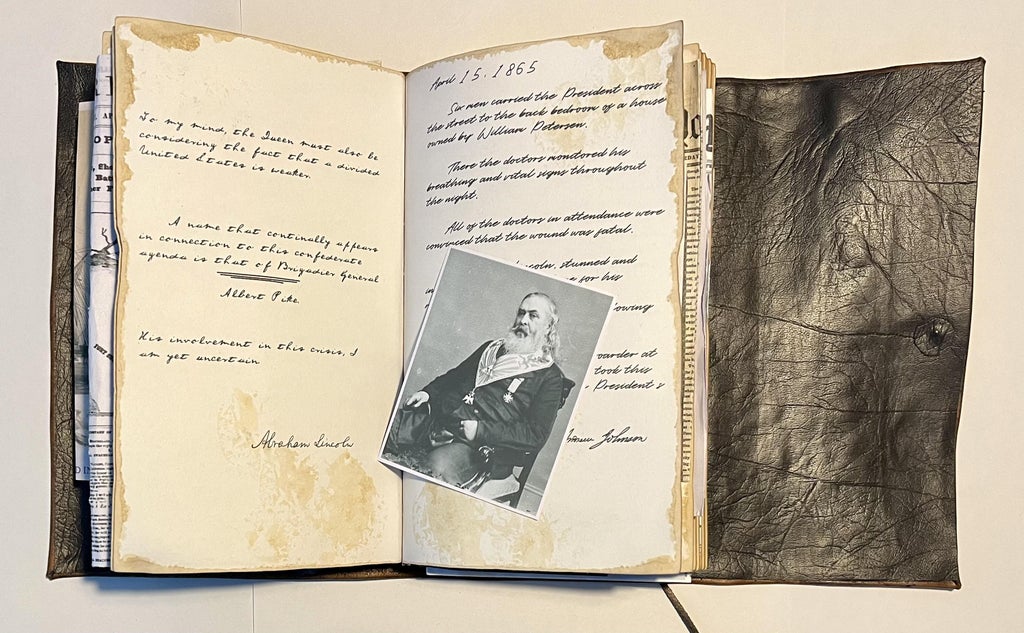 To my mind, the Queen must also be
considering the fact that a divided
United States is weaker.
A name that continally appears
in connection to this confederate
agenda is that of Brigadier General
Albert Pike.
His involvement in this crisis, I
am yet uncertain
Abraham Lincoln
April 15, 1865
Six men carried the President across
the street to the back bedroom of a house
owned by William Petersen.
There the doctors monitored his
breathing and vital signs throughout
the night.
All of the doctors in attendance were
convinced that the wound was fatal.
stunned and
for his
oarder at
took this
President s
Johnson